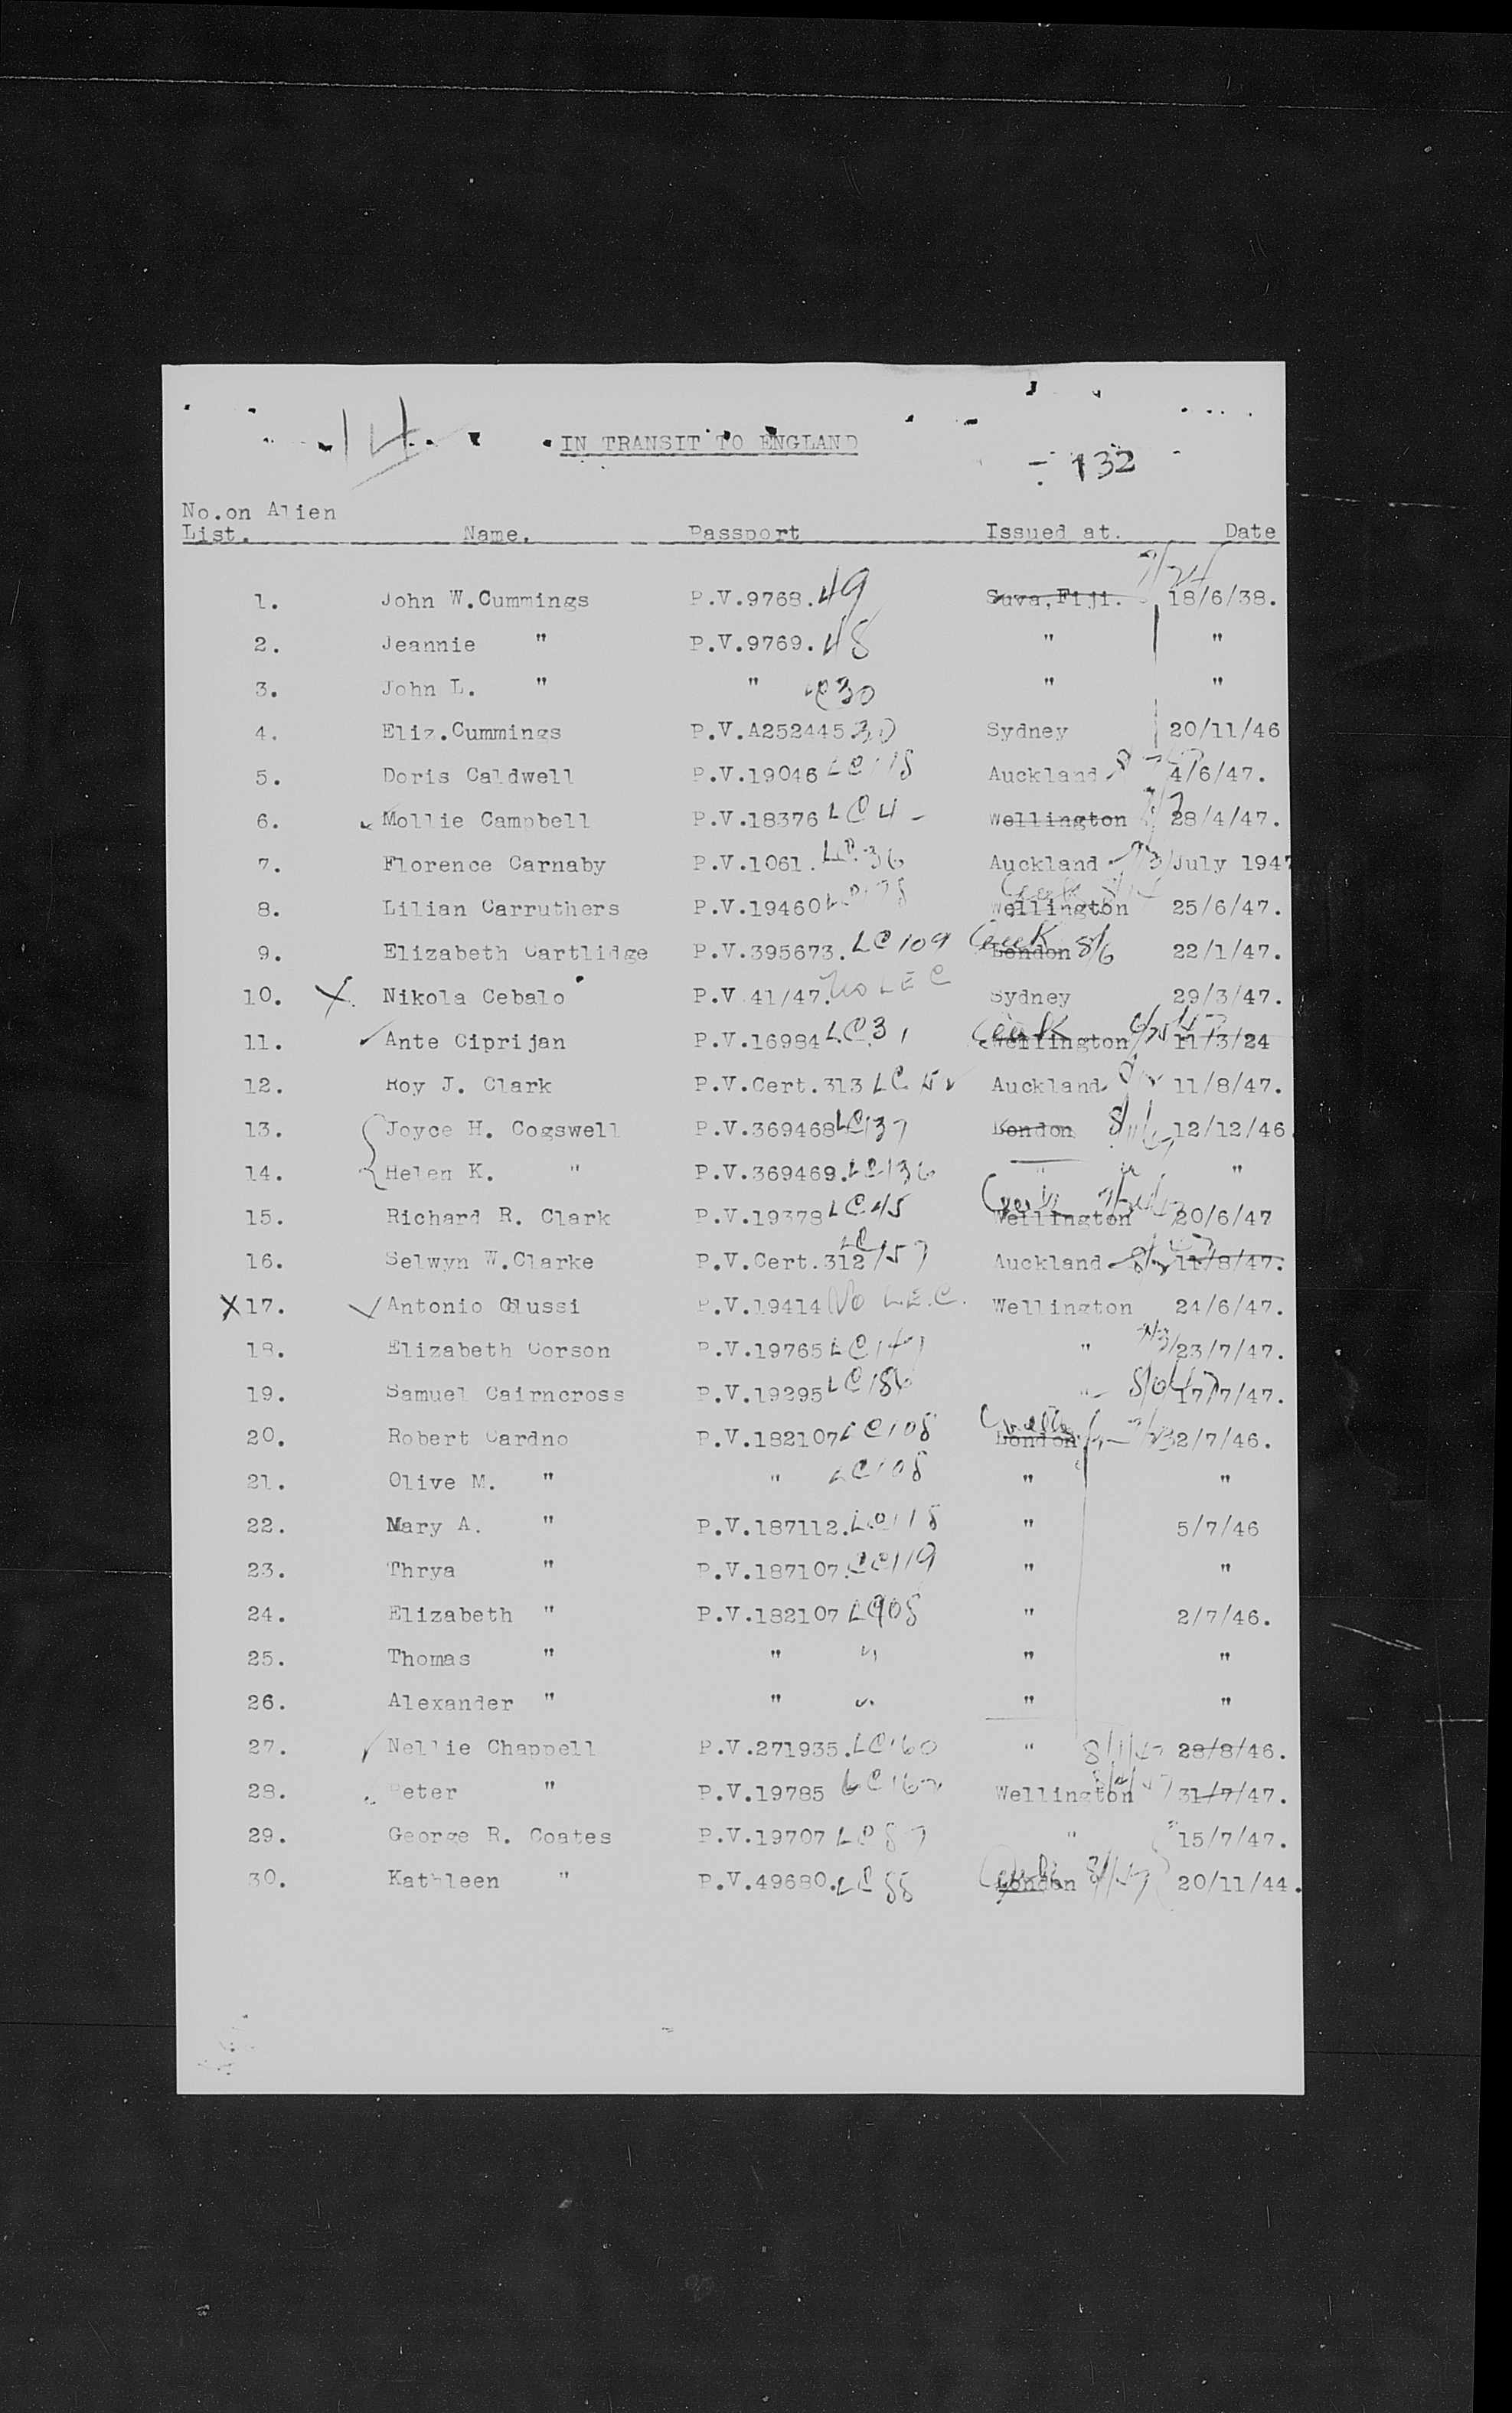 14
IN TRANSIT TO ENGLAND
132
No.on Alien
List. Name. Passport Issued at. Date
1. John W.Cummings P.V.9768. 49 Suva,Fiji. 18/6/38.
2. Jeannie " P.V.9769. 48 " "
3. John L. " " LC 30 " "
4. Eliz.Cummings P.V.A252445 30 Sydney 20/11/46
5. Doris Caldwell P.V.19046 LC 118 Auckland 4/6/47.
6. Mollie Campbell P.V.18376 LC 4 Wellington 28/4/47.
7. Florence Carnaby P.V.1061. LC 36 Auckland July 1947
8. Lilian Carruthers P.V.19460 Wellington 25/6/47.
9. Elizabeth Cartlidge P.V.395673. LC 109 London 8/6 22/1/47.
10. X Nikola Cebalo P.V.41/47. No LEC Sydney 29/3/47.
11. ✓ Ante Ciprijan P.V.16984 LC 31 Wellington 11/3/24
12. Roy J. Clark P.V.Cert.313 LC Auckland 11/8/47.
13. Joyce H. Cogswell P.V.369468 LC 137 London 12/12/46
14. Helen K. " P.V.369469. LC 136 " "
15. Richard R. Clark P.V.19378 LC 45 Wellington 20/6/47
16. Selwyn W.Clarke P.V.Cert.312 LC 157 Auckland 11/8/47.
X 17. ✓ Antonio Clussi P.V.19414 No L.E.C. Wellington 24/6/47.
18. Elizabeth Corson P.V.19765 LC 147 " 23/7/47.
19. Samuel Cairncross P.V.19295 LC 186 " 17/7/47.
20. Robert Cardno P.V.182107 LC 108 London 2/7/46.
21. Olive M. " " LC 108 " "
22. Mary A. " P.V.187112. LC 118 " 5/7/46
23. Thrya " P.V.187107. LC 119 " "
24. Elizabeth " P.V.182107 LC 108 " 2/7/46.
25. Thomas " " " " "
26. Alexander " " " " "
27. ✓ Nellie Chappell P.V.271935. LC 160 " 28/8/46.
28. Peter " P.V.19785 LC 16 Wellington 31/7/47.
29. George R. Coates P.V.19707 LC 87 " 15/7/47.
30. Kathleen " P.V.49680. LC 88 London 20/11/44.